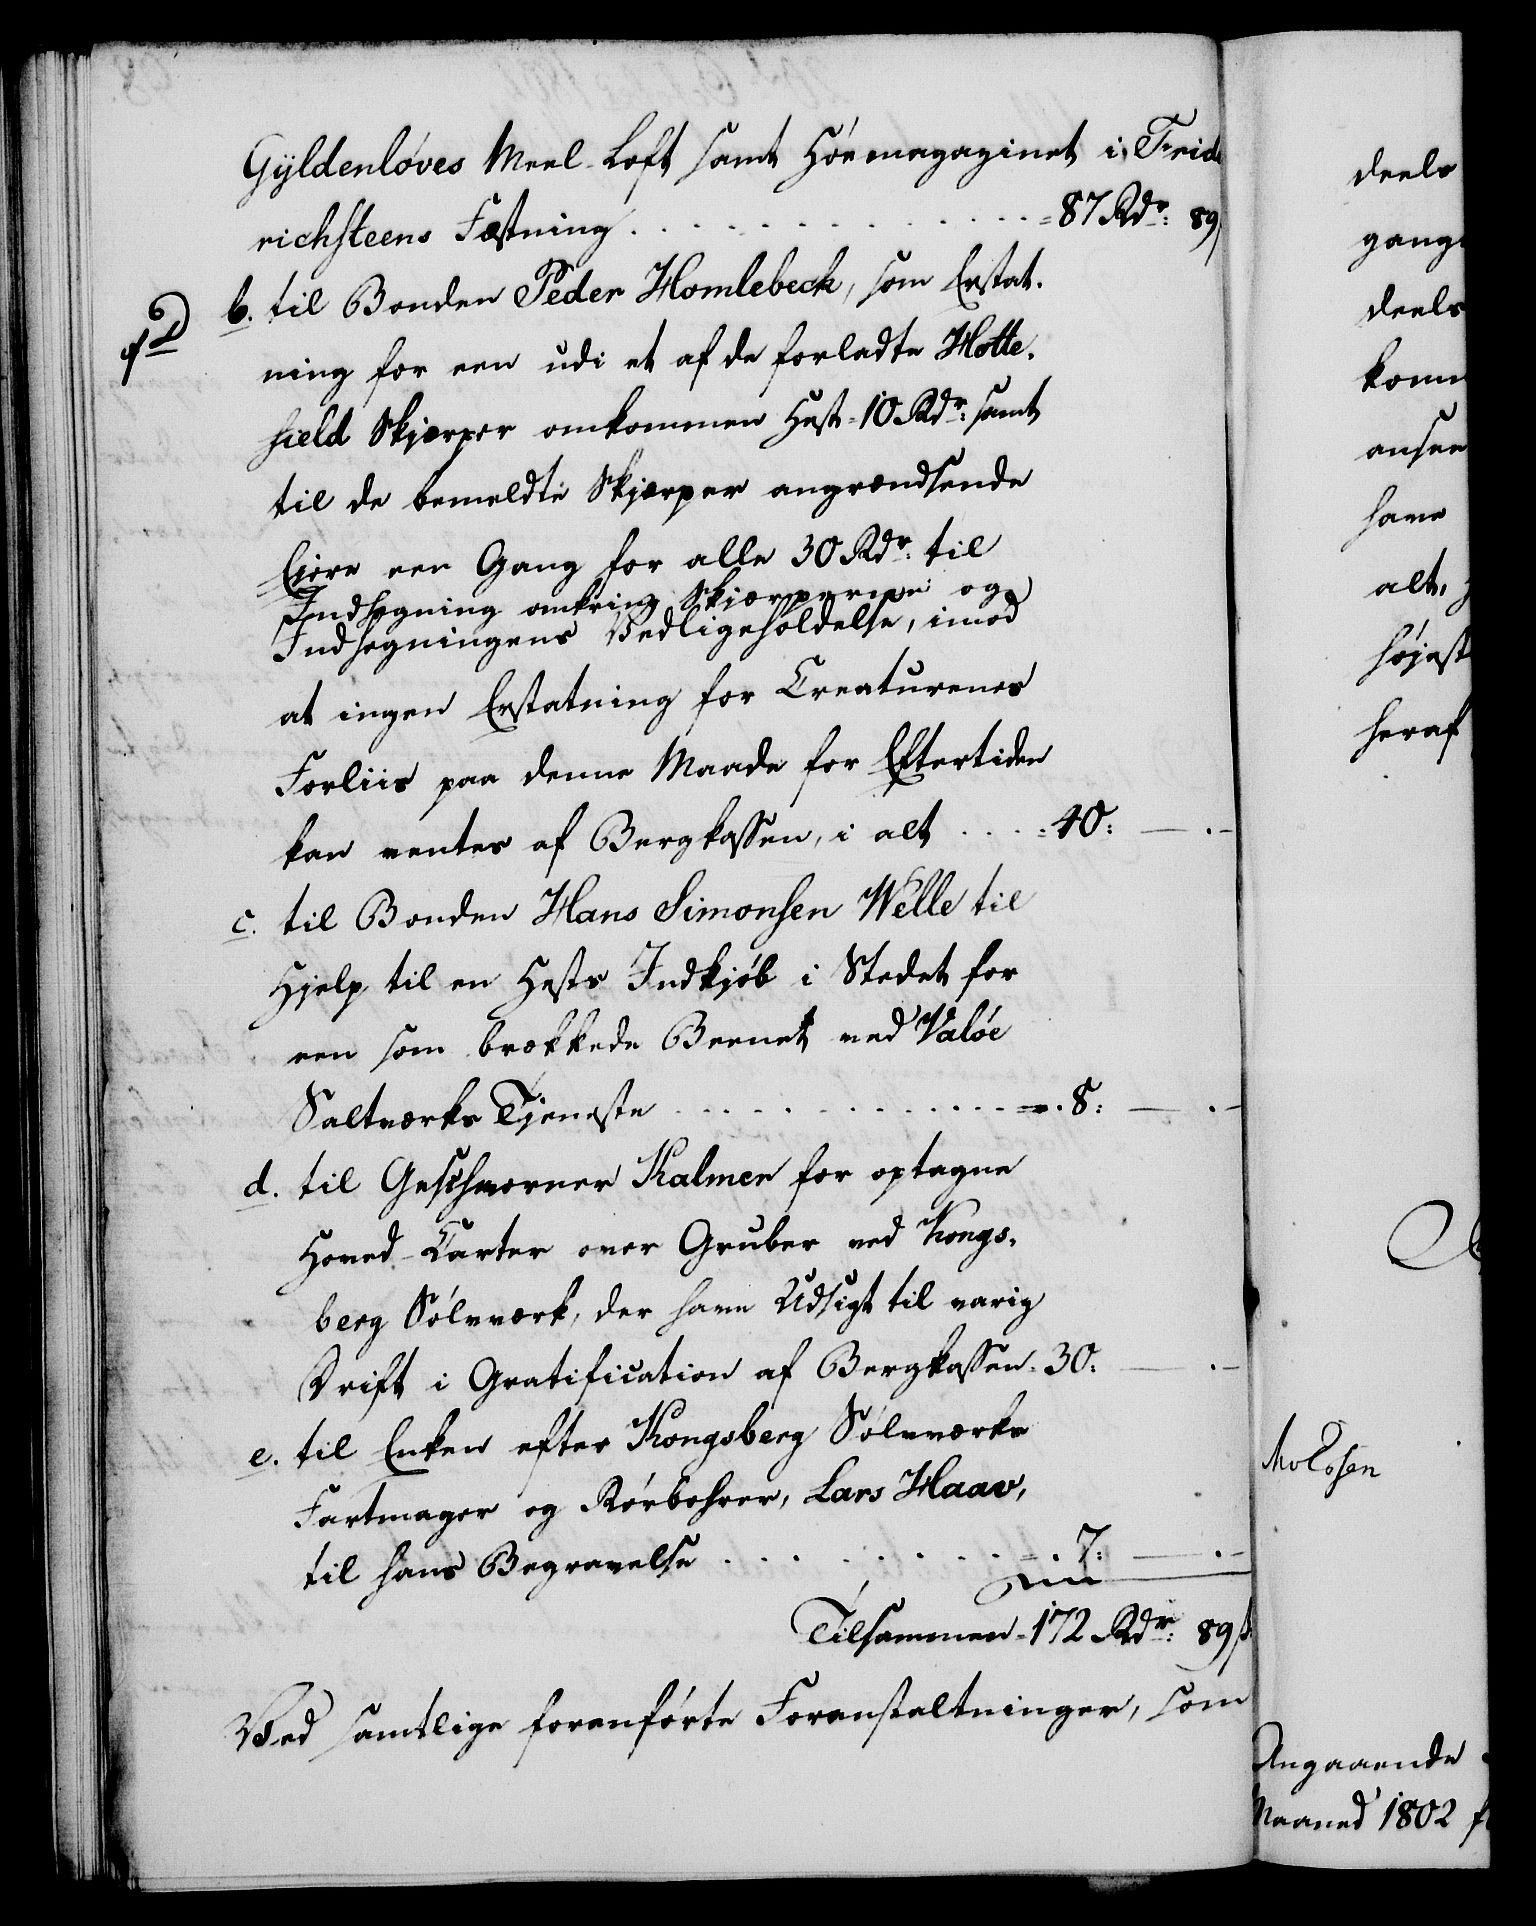 Gyldenløves Meel-Loft samt Høemagazinet i Frid
richsteens Fæstning . . . . . . . . . . . . = 87 Rdr: 89
b. til Bonden Peder Homlebeck, som Erstat-
ning for een udi et af de forladte Hotte-
field Skjærper omkommen Hest = 10 Rdr: samt
til de bemeldte Skjærper angrændsende
Ejere een Gang for alle 30 Rdr: til
Indhegning omkring Skjærperne og
Indhegningens Vedligeholdelse, imod
at ingen Erstatning for Creaturenes
Forliis paa denne Maade for Eftertiden
kan ventes af Bergkassen, i alt . . . = 40: — . —
c. til Bonden Hans Simonsen Welle til
Hjelp til en Hests Indkjøb i Stedet for
een som brækkede Beenet ved Valøe
Saltværks Tjeneste . . . . . . . . . . . = . 8: — . —
d. til Geschworner Kalmer for optagne
Hoved-Carter over Gruber ved Kongs-
berg Sølvværk, der have Udsigt til varig
Drift i Gratification af Bergkassen = 30: — . —
e. til Enken efter Kongsberg Sølvværks
Fartmager og Rørbohrer, Lars Haav,
til hans Begravelse . . . . . . . . . = . 7: — . —
Tilsammen = 172 Rdr: 89 s.
Ved samtlige foranførte Foranstaltninger, som
deels
gang
deels
komm
ansee
have
alt,
højst
heraf
Angaaende
Maaned 1802